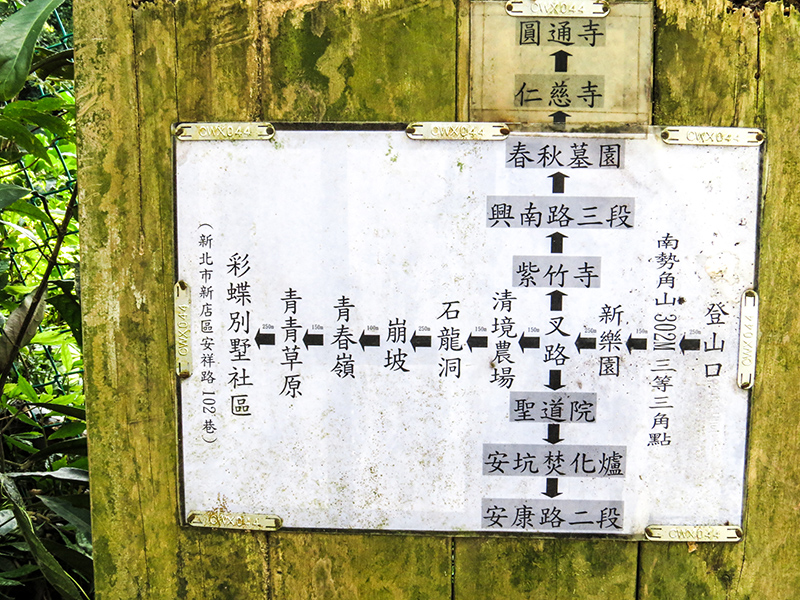 CWX044
圓通寺
仁慈寺
CWX044
CWX044
CWX044
春秋墓園
興南路三段
紫竹寺
登山口
250m
南勢角山 302M 三等三角點
150m
新樂園
250m
叉路
150m
清境農場
150m
石龍洞
250m
崩坡
100m
青春嶺
150m
青青草原
250m
彩蝶別墅社區
(新北市新店區安祥路102巷)
聖道院
安坑焚化爐
安康路二段
CWX044
CWX044
CWX044
CWX044